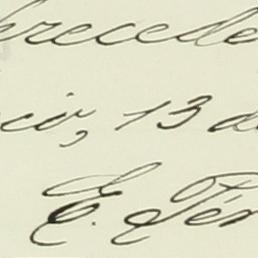 precede
cio, 13 d
E. Pér